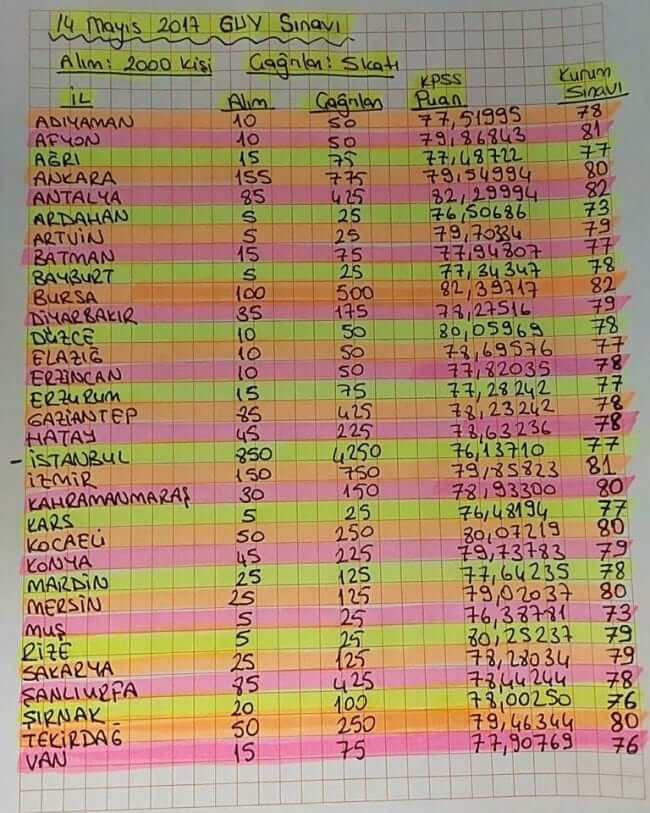 14 Mayıs 2017 GUY Sınavı
Alım: 2000 Kişi Çağrılan: 5 katı
İL Alım Çağrılan KPSS Puan Kurum Sınavı
ADIYAMAN 10 50 77,51995 78
AFYON 10 50 79,86843 81
AĞRI 15 75 77,48722 77
ANKARA 155 775 79,54994 80
ANTALYA 85 425 82,29994 82
ARDAHAN 5 25 76,50686 73
ARTVİN 5 25 79,70334 79
BATMAN 15 75 77,94807 77
BAYBURT 5 25 77,34347 78
BURSA 100 500 82,39717 82
DİYARBAKIR 35 175 78,27516 79
DÜZCE 10 50 80,05969 78
ELAZIĞ 10 50 78,69576 77
ERZİNCAN 10 50 77,82035 78
ERZURUM 15 75 77,28242 77
GAZİANTEP 85 425 78,23242 78
HATAY 45 225 78,63236 78
- İSTANBUL 850 4250 76,13710 77
İZMİR 150 750 79,85823 81
KAHRAMANMARAŞ 30 150 78,93300 80
KARS 5 25 76,48194 77
KOCAELİ 50 250 80,07219 80
KONYA 45 225 79,73783 79
MARDİN 25 125 77,64235 78
MERSİN 25 125 79,02037 80
MUŞ 5 25 76,38781 73
RİZE 5 25 80,25237 79
SAKARYA 25 125 78,28034 79
ŞANLIURFA 85 425 78,44244 78
ŞIRNAK 20 100 78,00250 76
TEKİRDAĞ 50 250 79,46344 80
VAN 15 75 77,90769 76